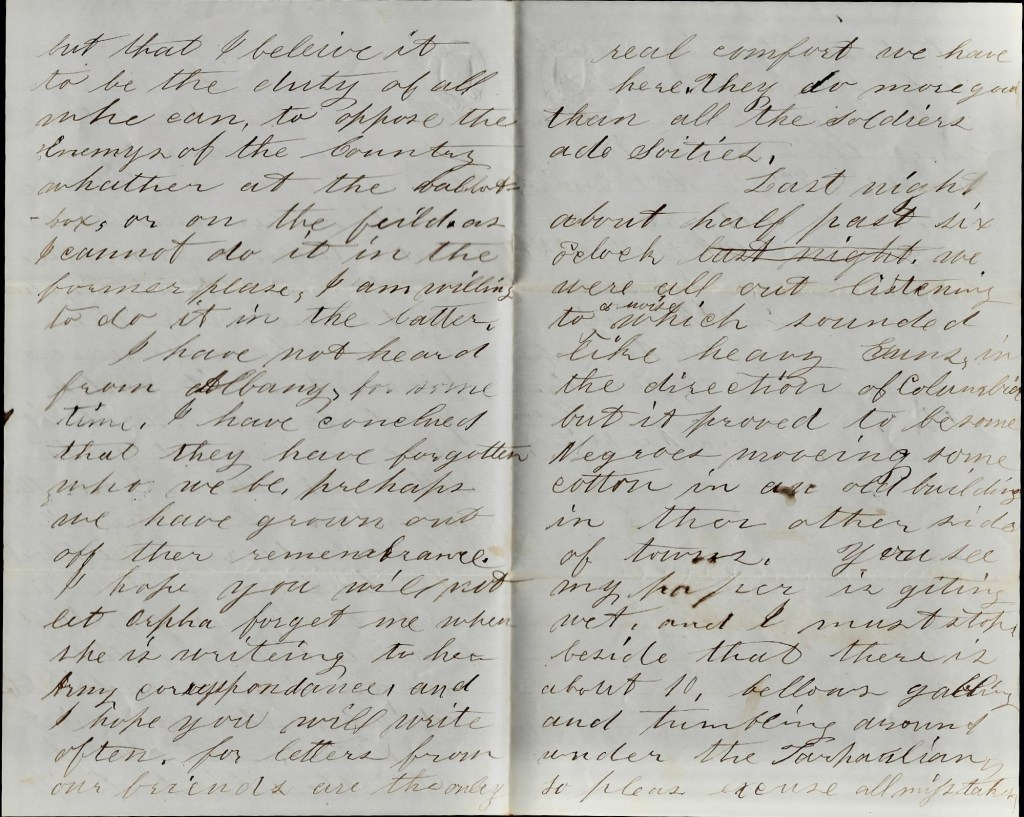 but that I beleive it
to be the duty of all
who can, to oppose the
Enemys of the Country
whather at the ballot-
-box, or on the feild. as
I cannot do it in the
former plase, I am willing
to do it in the latter.
I have not heard
from Albany, for some
time. I have conclued
that they have forgotten
who we be, prehaps
we have grown out
off ther remembrance.
I hope you will not
let Orpha forget me when
she is writeing to her
Army correspondance, and
I hope you will write
often. for letters from
our friends are the only
real comfort we have
here. They do more good
than all the soldiers
ade Soities.
Last night
about half past six
o'clock last night. we
were all out listening
to a noise which sounded
like heavy Guns, in
the direction of Columbia
but it proved to be some
Negroes moveing some
cotton in an old building
in ther other side
of towns. You see
my paper is giting
wet, and I must stop,
beside that there is
about 10, fellows gabbling
and tumbling around
under the Tarpaulian,
so pleas excuse all mistakes